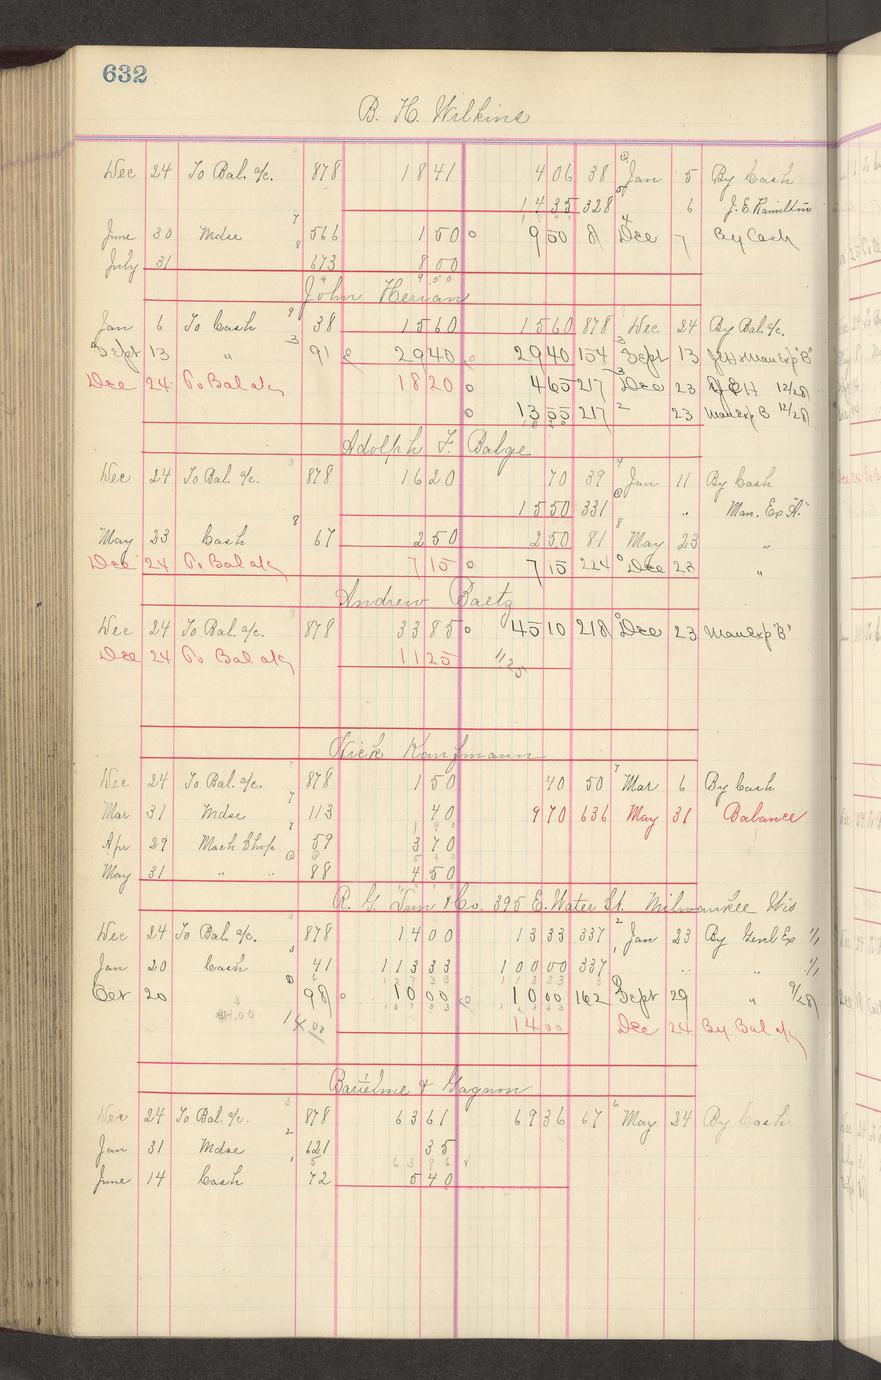 632
B. H. Wilkins
Dec 24 To Bal. a/c. 878 18 41 4 06 38 Jan 5 By Cash
14 35 328 6 J. E. Hamilton
June 30 Mdse 7 566 1 50 9 50 8 Dec 7 By Cash
July 31 8 673 8 00
9 50
John Herian
Jan 6 To Cash 9 38 15 60 15 60 878 Dec 24 By Bal. a/c.
Sept 13 " 3 91 29 40 29 40 154 Sept 13 Man Exp "B"
Dec 24 To Bal a/c 18 20 4 65 217 Dec 23 12/28
13 55 217 2 23 Man Exp B 12/28
Adolph F. Babge
Dec 24 To Bal. a/c. 878 16 20 70 39 Jan 11 By Cash
15 50 331 " Man. Ex "A."
May 23 Cash 8 67 2 50 2 50 81 May 23 "
Dec 24 To Bal a/c 7 15 7 15 224 Dec 23 "
Andrew Baetz
Dec 24 To Bal. a/c. 878 33 85 45 10 218 Dec 23 Man Exp "B"
Dec 24 To Bal a/c 11 25 11 25
Nick Kaufmann
Dec 24 To Bal. a/c. 878 1 50 40 50 Mar 6 By Cash
Mar 31 Mdse 7 113 40 9 70 636 May 31 Balance
Apr 29 Mach Shop 7 59 3 70
May 31 " " 88 4 50
R. G. Dun & Co. 395 E. Water St. Milwaukee Wis
Dec 24 To Bal. a/c. 878 14 00 13 33 337 Jan 23 By Genl Ex 1/1
Jan 20 Cash 3 41 113 33 100 00 337 " " 1/1
Oct 20 98 10 00 10 00 162 Sept 29 " 9/28
$14.00 14 00 14 00 Dec 24 By Bal a/c
Bartelme & Gagnon
Dec 24 To Bal. a/c. 878 63 61 69 36 67 May 24 By Cash
Jan 31 Mdse 2 621 35
63 96
June 14 Cash 72 5 40